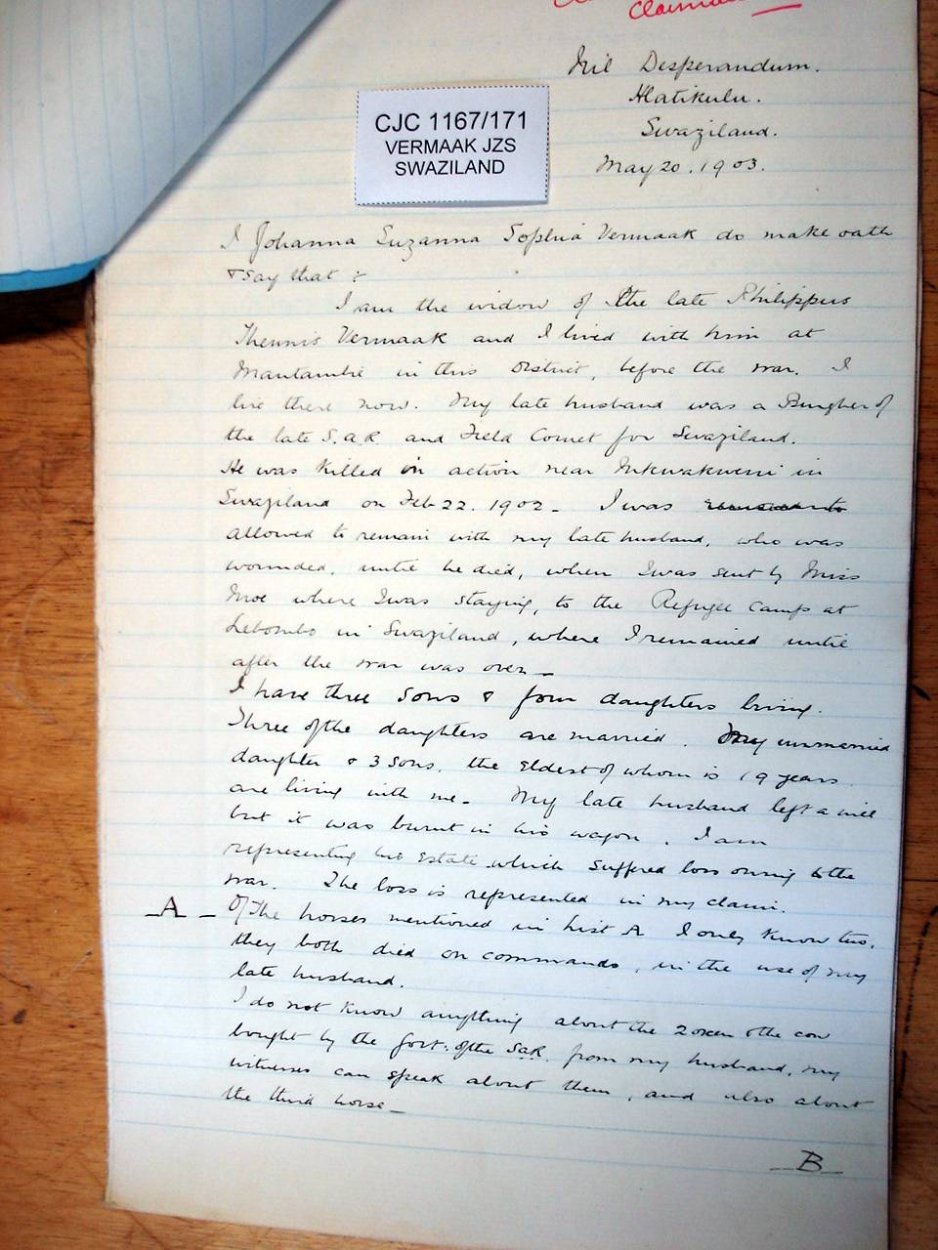 Claimant
Nil Desperandum.
Hlatikulu.
Swaziland.
May 20. 1903.
CJC 1167/171
VERMAAK JZS
SWAZILAND
I Johanna Suzanna Sophia Vermaak do make oath
& say that :-
I am the widow of the late Philippus
Theunis Vermaak and I lived with him at
in this District, before the war. I
live there now. My late husband was a Burgher of
the late S.A.R and Field Cornet for Swaziland.
He was killed in action near in
Swaziland on Feb 22. 1902 - I was
allowed to remain with my late husband, who was
wounded, until he died, when I was sent by Miss
Moe where I was staying, to the Refugee Camp at
Lebombo in Swaziland, where I remained until
after the war was over -
I have three sons & four daughters living.
Three of the daughters are married. My unmarried
daughter & 3 sons, the eldest of whom is 19 years
are living with me - My late husband left a will
but it was burnt in his wagon. I am
representing his Estate which suffered loss owing to the
war. The loss is represented in my claim.
- A - Of the horses mentioned in List A I only know two,
they both died on commando, in the use of my
late husband.
I do not know anything about the 2 oxen & the cow
bought by the Govt: of the S.A.R. from my husband, my
witnesses can speak about them, and also about
the third horse -
- B -